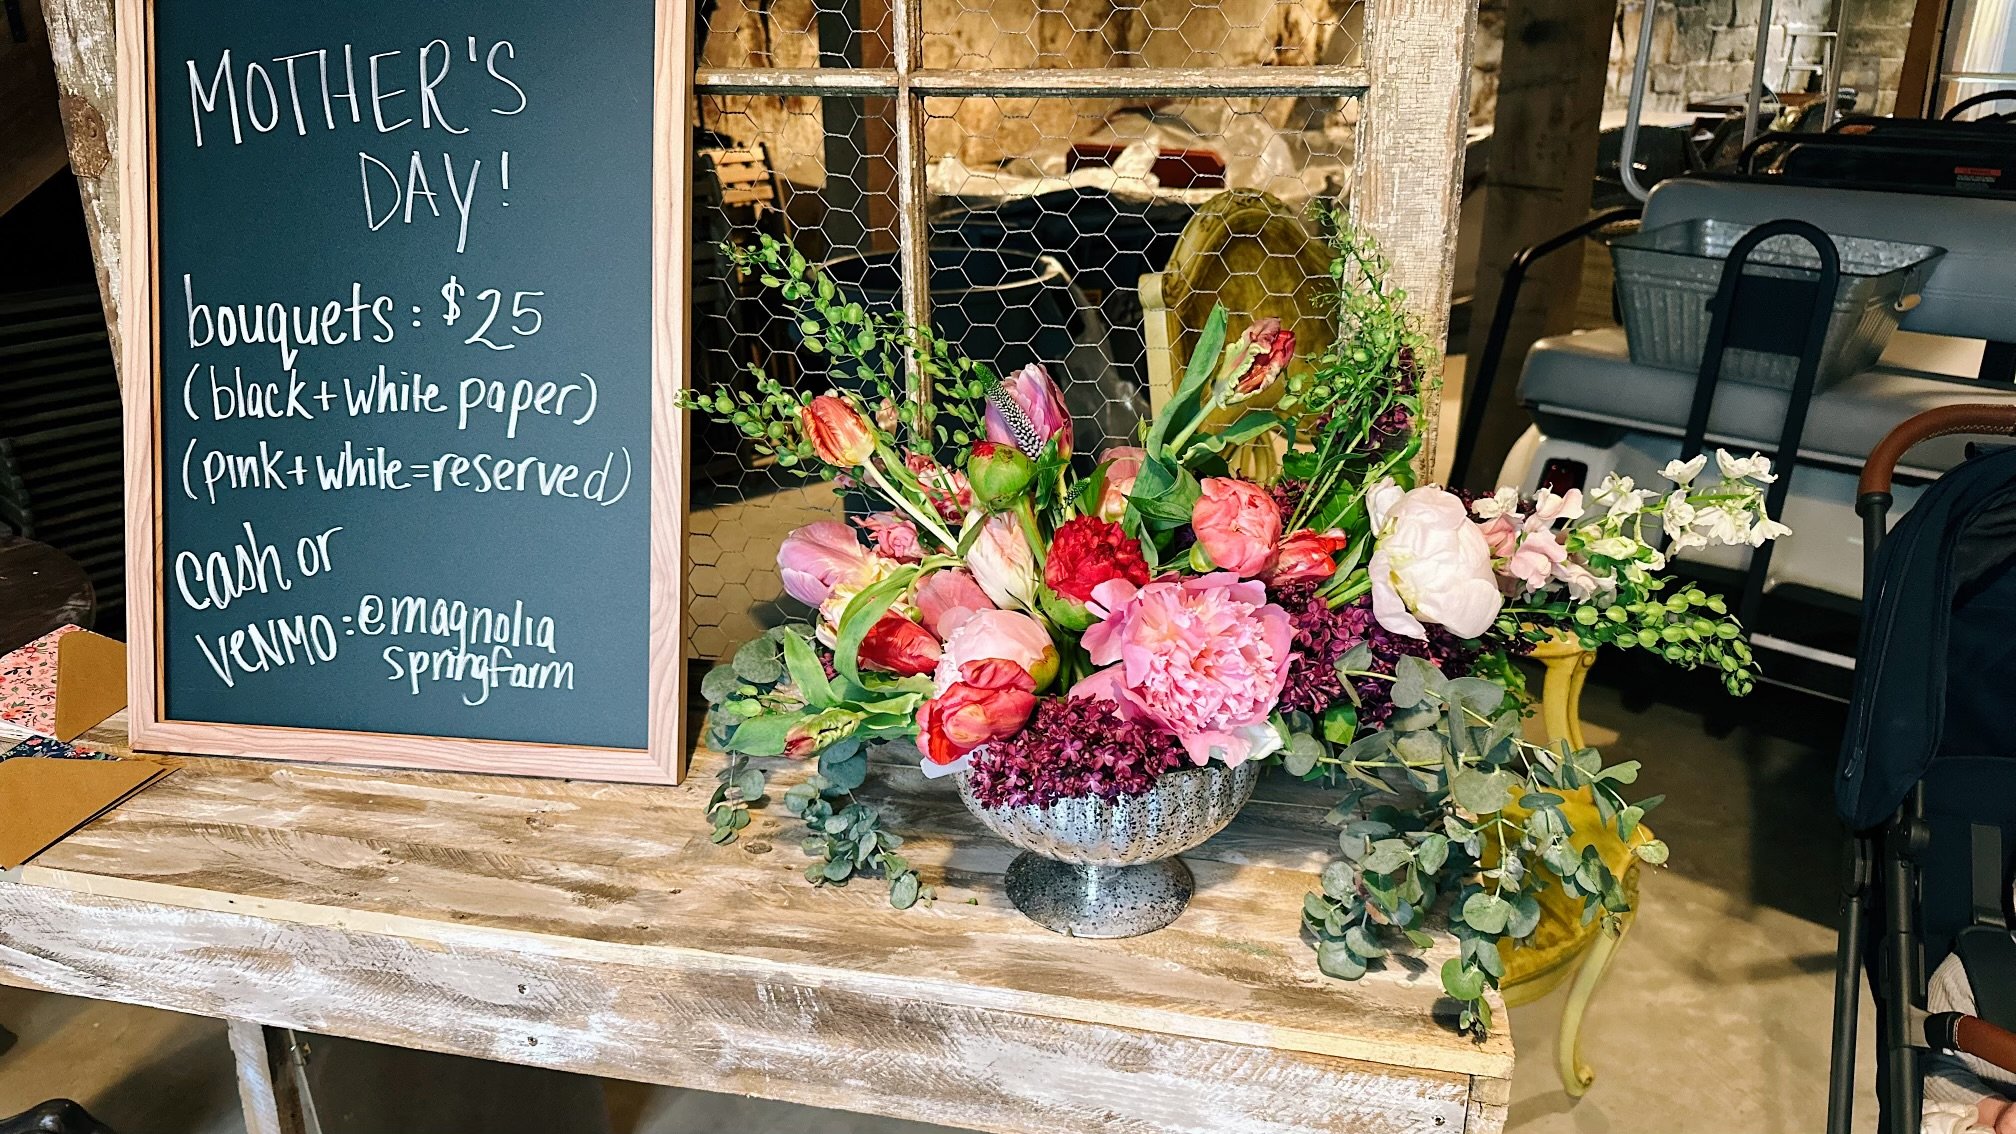 MOTHER'S
DAY!
bouquets: $25
(black+white paper)
(pink+white=reserved)
cash or
VENMO: @magnolia
springfarm